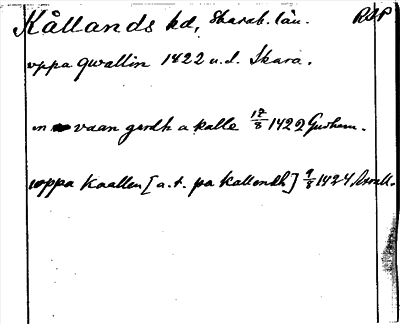 Kållands hd, Skarab. län. RAP
uppa qwallin 1422 u.d. Skara.
in vaan gardh a kalle 17/8 1422
uppa Kaallen [a.t. pa Kallendh] 9/8 1424